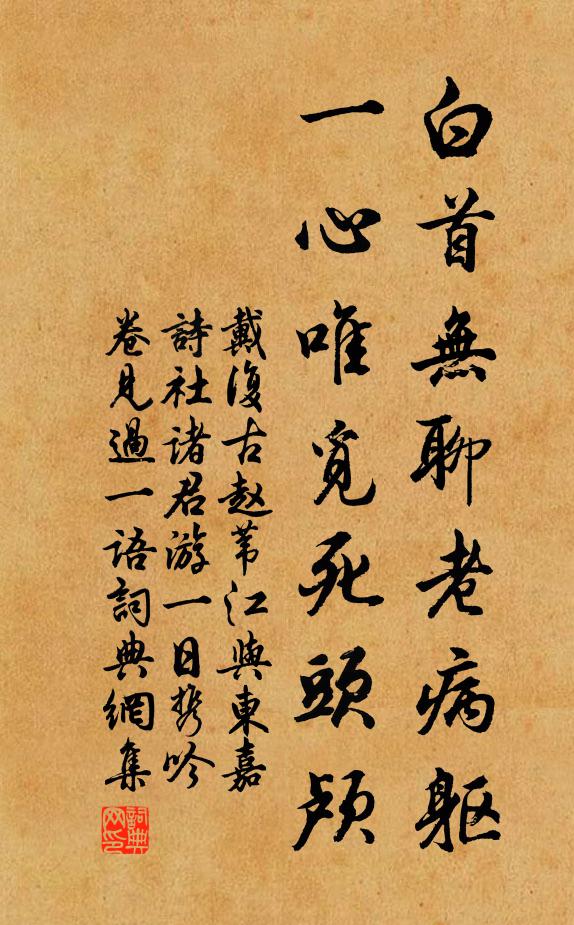 白首無聊老病軀
一心唯覓死頭颅
戴復古赵葦江與東嘉
詩社諸君游一日携吟
卷見過一語詞典網集
詞典网印